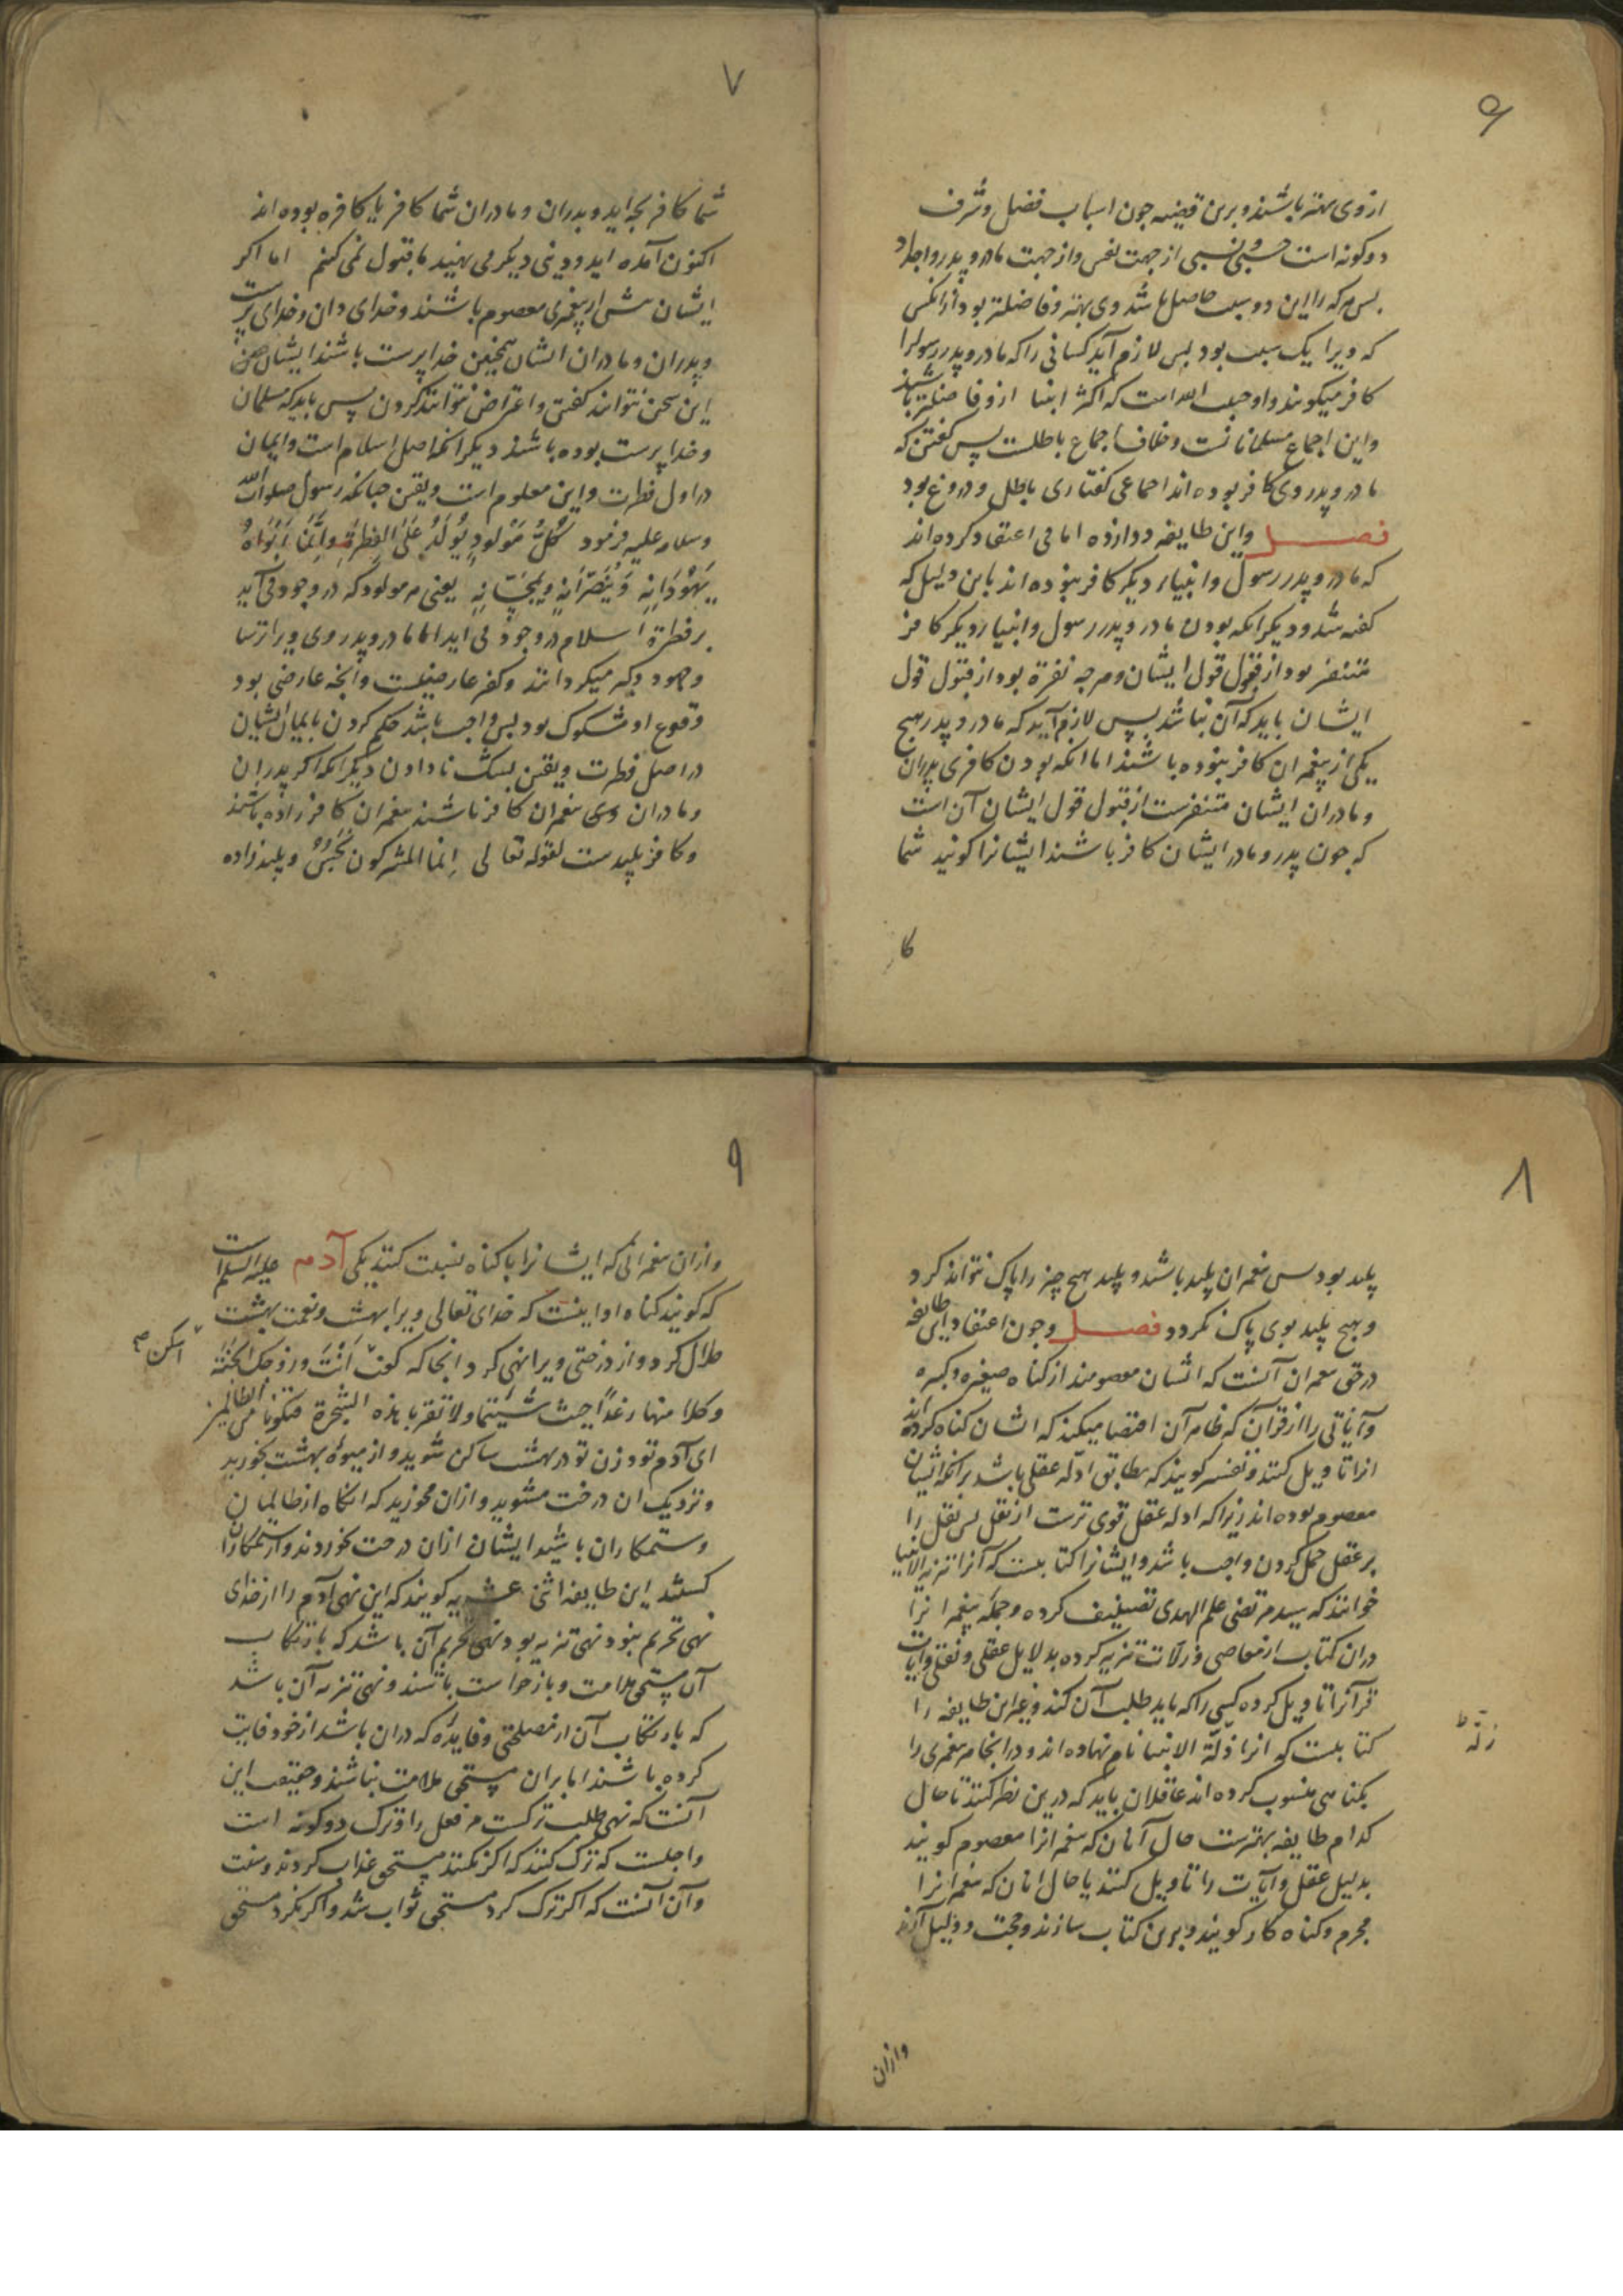 ۶
از وی بهتر باشند و برین قضیه چون اسباب فضل و شرف
دو کونه است حسبی و نسبی از جهت نفس و از جهت مادر و پدر و اجداد
بس هر که را این دو سبب حاصل باشد وی بهتر و فاضلتر بود از آنکس
که ویرا یک سبب بود بس لازم آید کسانی را که مادر و پدر رسولرا
کافر میکویند و او حبیب الله است که اکثر ابنیا از و فاضلتر باشند
و این اجماع مسلمانانست و خلاف اجماع باطلست پس کفتن که
مادر و پدر وی کافر بوده اند اجماعی کفتاری باطل و دروغ بود
فصل و این طایفه دوازده امامی اعتقاد کرده اند
که مادر و پدر رسول و انبیاء دیکر کافر نبوده اند باین دلیل که
کفته شد و دیکر انکه بودن مادر و پدر رسول و انبیاء دیکر کافر
متنفر بود از قبول قول ایشان و هر چه نفرة بود از قبول قول
ایشان باید که آن نباشد پس لازم آید که مادر و پدر هیچ
یکی از پیغمبران کافر نبوده باشند اما انکه بودن کافری پدران
و مادران ایشان متنفرست از قبول قول ایشان آن است
که چون پدر و مادر ایشان کافر باشند ایشانرا کویند شما
کا
۷
شما کافر بچه اید و پدران و مادران شما کافر یا کافره بوده اند
اکنون آمده اید و دینی دیکر می نهید ما قبول نمی کنیم اما اکر
ایشان پیش از پیغمبری معصوم باشند و خدای دان و خدای پرست
و پدران و مادران ایشان همچنین خدا پرست باشند ایشان
این سخن نتوانند کفتن و اعتراض نتوانند کردن پس باید که مسلمان
و خدا پرست بوده باشند دیکر انکه اصل اسلام است و ایمان
در اول فطرت و این معلوم است و یقین چنانکه رسول صلوات الله
و سلامه علیه فرمود کُلُّ مَوْلُودٍ یُولَدُ عَلَی الفِطْرَةِ وَ اِنَّمَا اَبَوَاهُ
یُهَوِّدَانِهِ وَ یُنَصِّرَانِهِ وَ یُمَجِّسَانِهِ یعنی هر مولود که در وجود می آید
بر فطرة اسلام در وجود می اید اما مادر و پدر وی ویرا ترسا
و جهود و کبر میکردانند و کفر عارضیست و آنچه عارضی بود
وقوع او مشکوک بود بس واجب باشد حکم کردن بایمان ایشان
در اصل فطرت و یقین بشک نا دادن دیکر انکه اکر پدران
و مادران پیغمبران کافر باشند پیغمبران کافر زاده باشند
و کافر پلیدست لقوله تعالی اِنما المشرکون نَجَسٌ و پلید زاده
۸
پلید بود بس پیغمبران پلید باشند و پلید هیچ چیز را پاک نتواند کرد
و هیچ پلید بوی پاک نکردد فصل و چون اعتقاد این طایفه
در حق پیغمبران آنست که ایشان معصومند از کناه صغیره و کبیره
و آیاتی را از قرآن که ظاهر آن اقتضا میکند که ایشان کناه کرده اند
انرا تاویل کنند و تفسیر کویند که مطابق ادلّه عقلی باشد بر آنکه ایشان
معصوم بوده اند زیرا که ادله عقل قوی ترست از نقل بس نقل را
بر عقل حمل کردن واجب باشد و ایشانرا کتابیست که آنرا تنزیه الانبیا
خوانند که سید مرتضی علم الهدی تصنیف کرده و جمله پیغمبرانرا
در ان کتاب از معاصی و زلات تنزیه کرده بدلایل عقلی و نقلی و آیات
قرآنرا تاویل کرده کسی را که باید طلب آن کند و غیر این طایفه را
کتابیست که انرا ذلّة الانبیا نام نهاده اند و در انجا هر پیغمبری را
زلّة ط
بکناهی منسوب کرده اند عاقلان باید که درین نظر کنند تا حال
کدام طایفه بهترست حال آنان که پیغمبرانرا معصوم کویند
بدلیل عقل و آیات را تاویل کنند یا حال انان که پیغمبرانرا
مجرم و کناه کار کویند و برین کتاب سازند و حجت و دلیل آرند
وازان
۹
وازان پیغمبرانی که ایشانرا با کناه نسبت کنند یکی آدم علیه السلام است
که کویند کناه او اینست که خدای تعالی ویرا بهشت و نعمت بهشت
حلال کرد و از درختی ویرا نهی کرد انجا که کفت اَنْتَ وَ زوجک الجنّة
اسکن صح
وکلا منها رغداً حیث شئتما ولا تقربا هذه الشجرة فتکونا من الظالمین
ای آدم تو و زن تو در بهشت ساکن شوید و از میوهٔ بهشت بخورید
و نزدیک ان درخت مشوید و ازان مخورید که انکاه از ظالمان
و ستمکاران باشید ایشان ازان درخت بخوردند و از ستمکاران
کشتند این طایفه اثنی عشریه کویند که این نهی آدم را از خدای
نهی تحریم نبود نهی تنزیه بود نهی تحریم آن باشد که بارتکاب
آن مستحق ملامت و بازخواست باشند و نهی تنزیه آن باشد
که بارتکاب آن از مصلحتی و فایدهٔ که دران باشد از خود فایت
کرده باشند اما بران مستحق ملامت نباشند و حقیقت این
آنست که نهی طلب ترکست مر فعل را و ترک دو کونه است
واجبست که ترک کنند که اکر نکنند مستحق عذاب کردند و سنت
و آن آنست که اکر ترک کرد مستحق ثواب شد و اکر نکرد مستحق